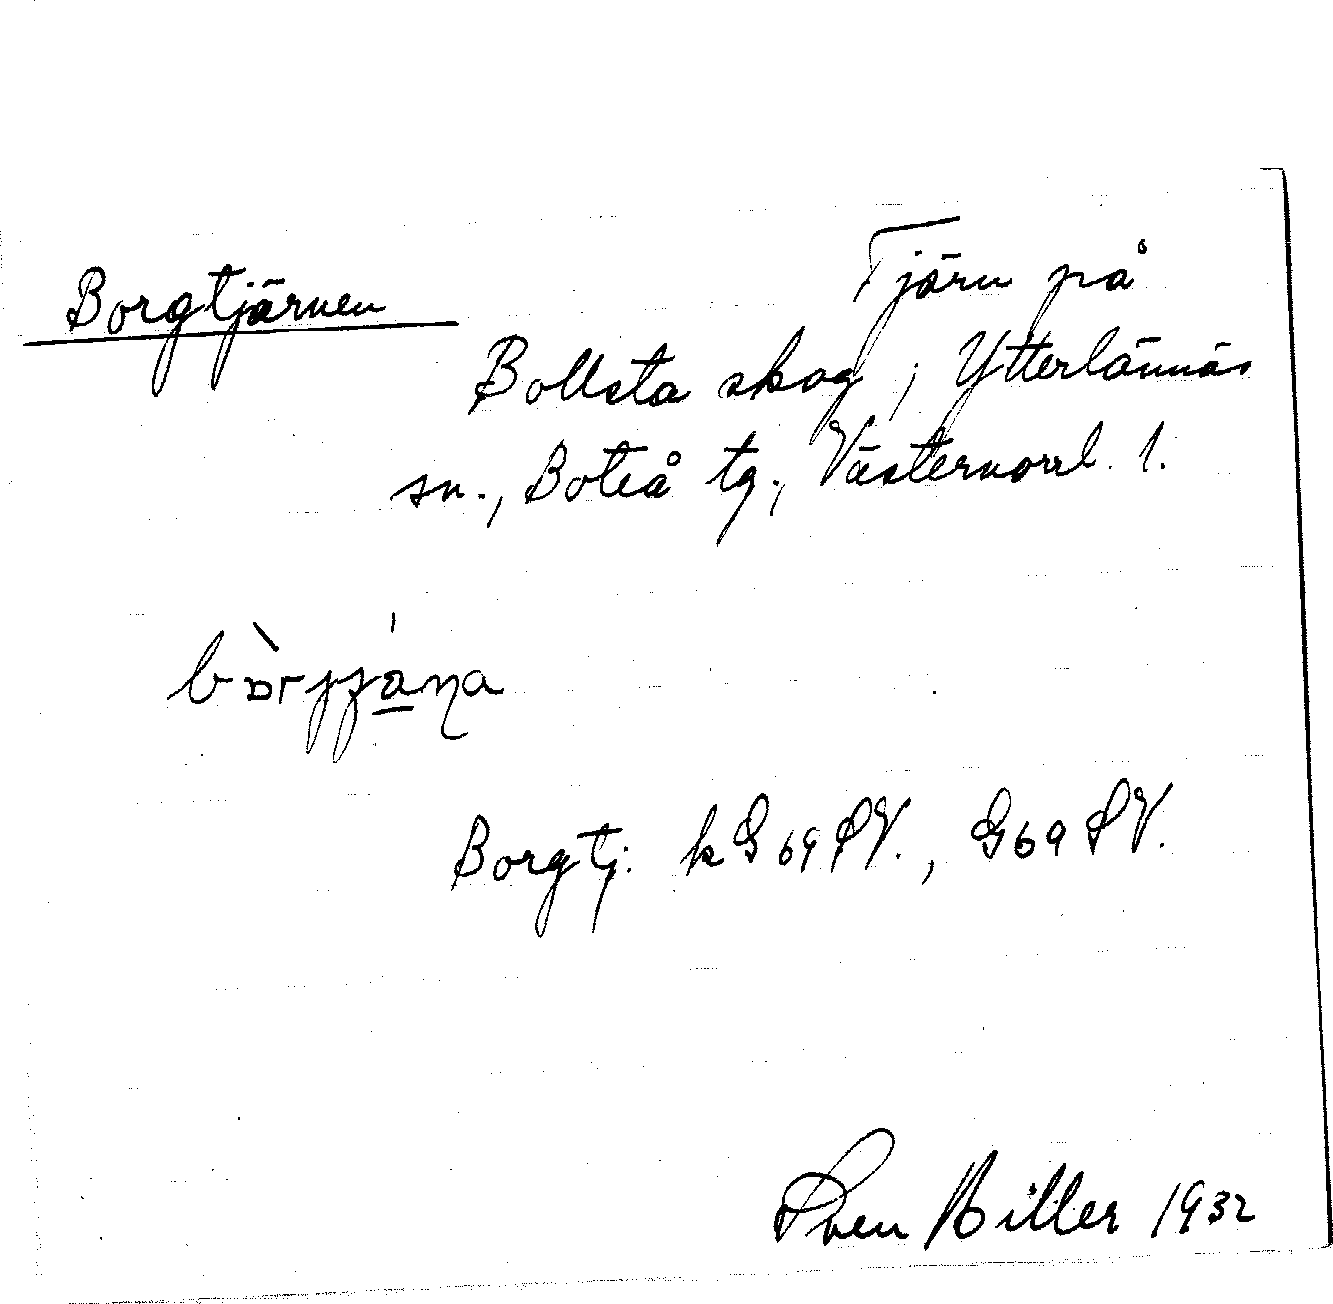 Borgtjärnen
Tjärn på
Bollsta skog, Ytterlännäs
sn., Boteå tg., Västernorrl. l.
Borgtj. kG69SV., G69SV.
Sven Hiller 1932